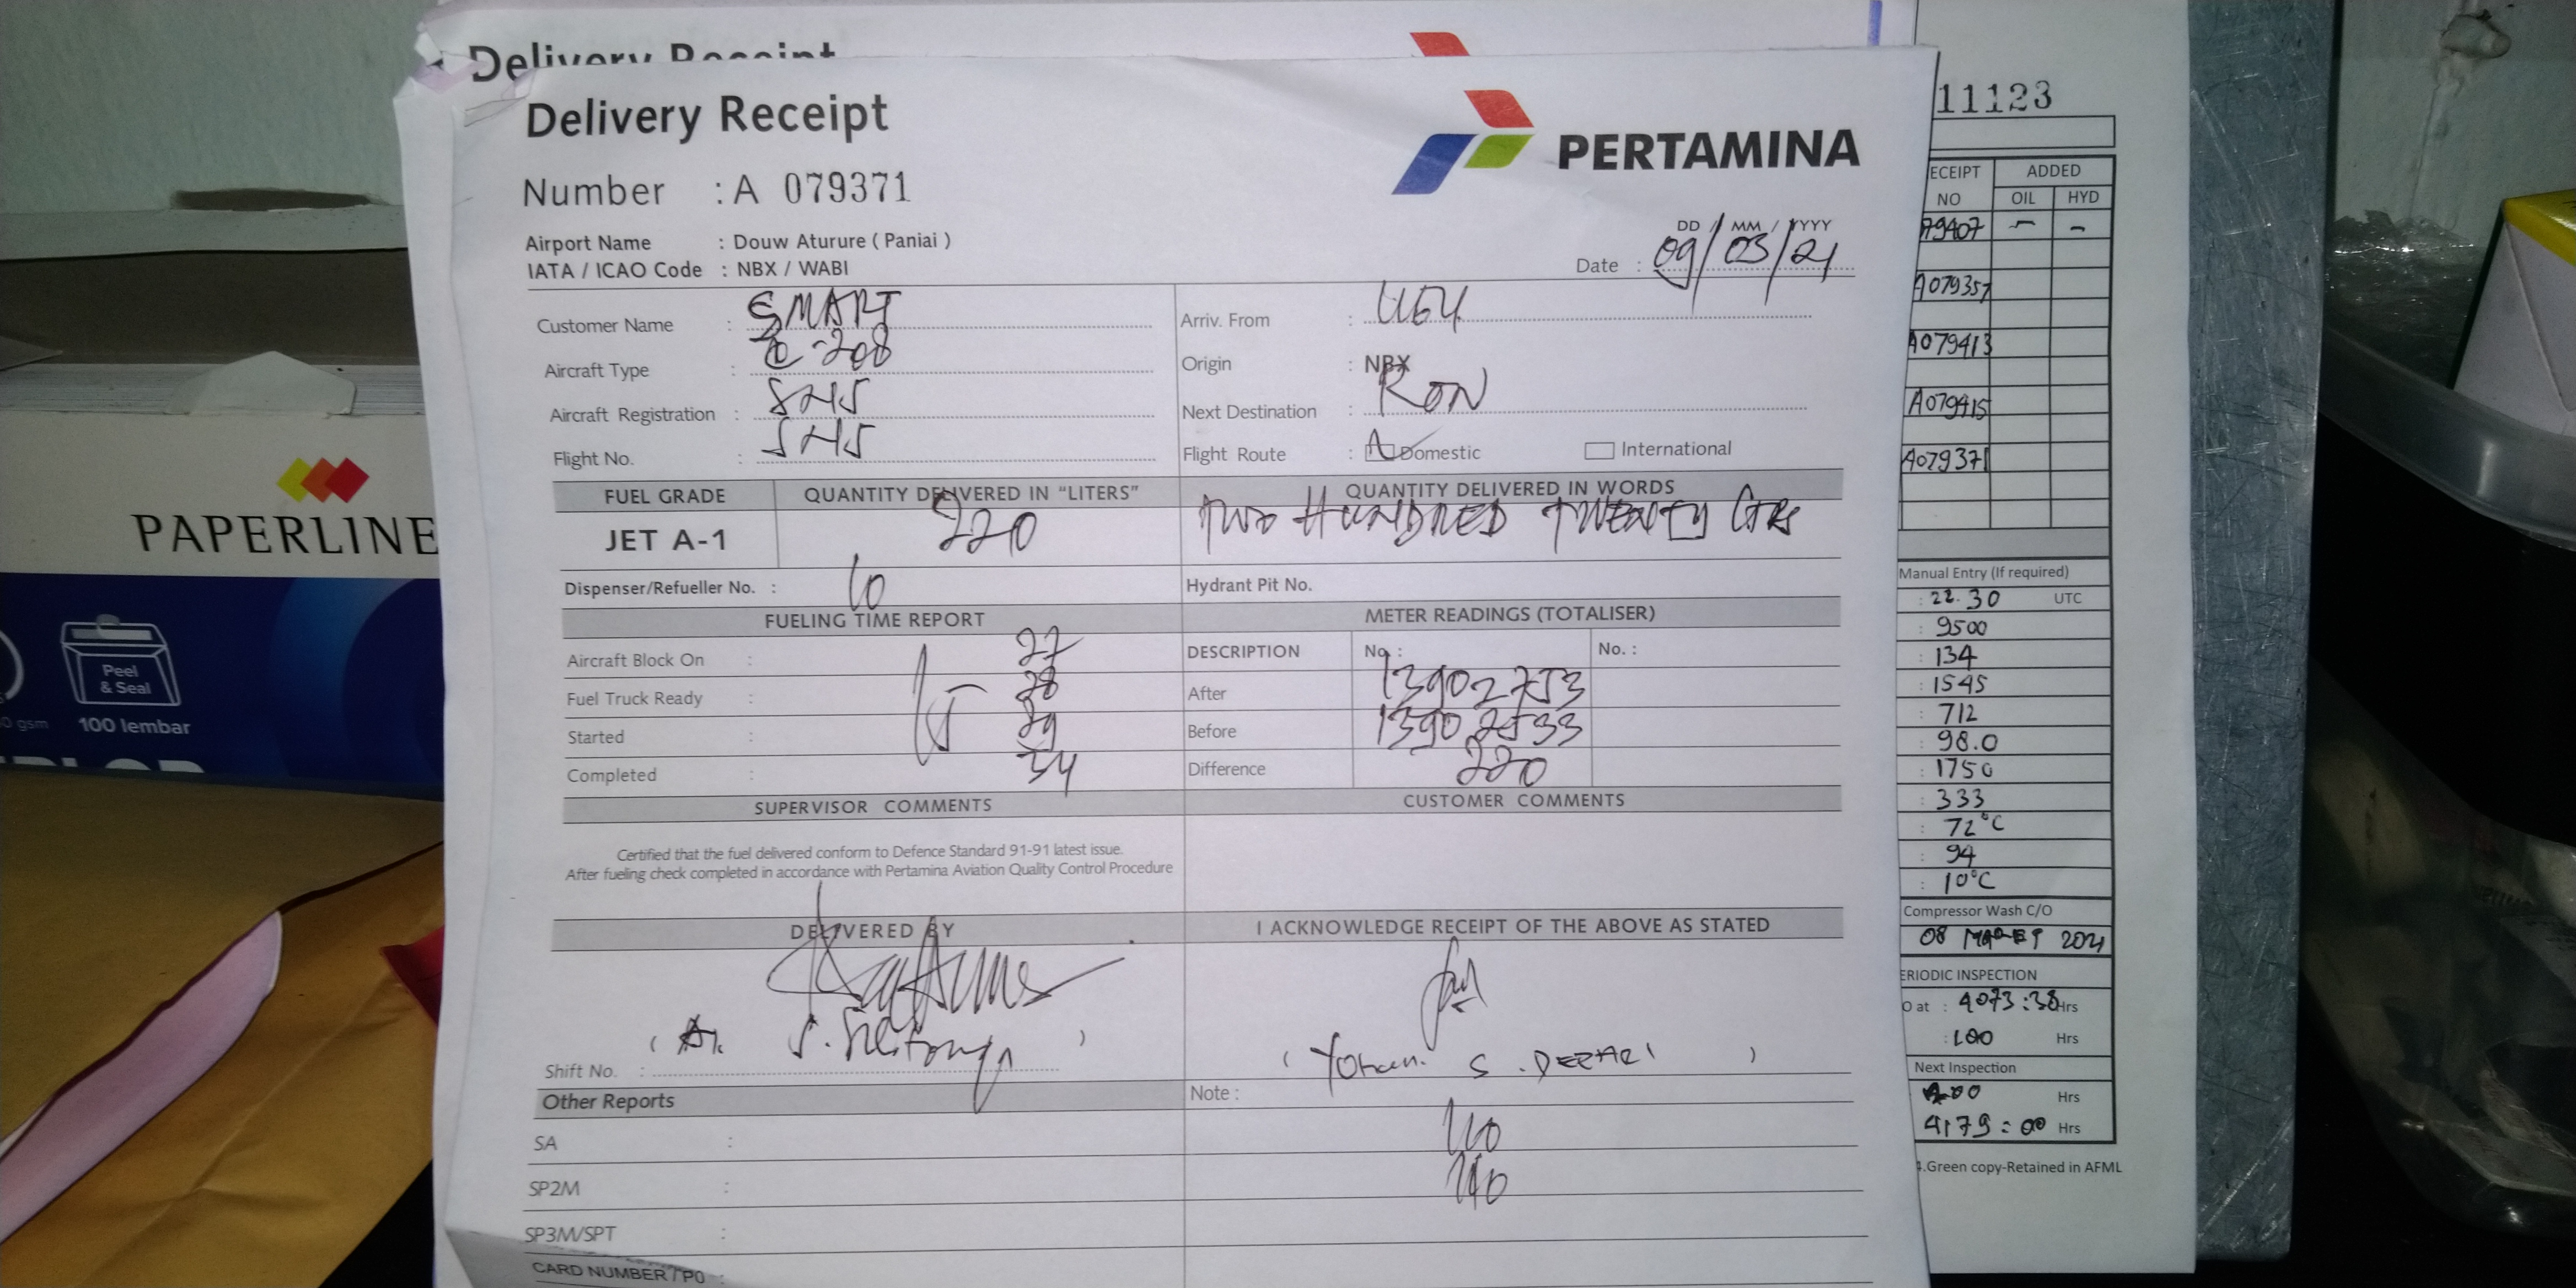 Delivery Receipt
Delivery Receipt
PERTAMINA
Number : A 079371
Airport Name : Douw Aturure ( Paniai )
IATA / ICAO Code : NBX / WABI
DD / MM / YYYY
Date : 09/03/21
Customer Name : SMART
Aircraft Type : C-208
Aircraft Registration :
Flight No. :
Arriv. From :
Origin : NBX
Next Destination : RON
Flight Route : Domestic International
FUEL GRADE QUANTITY DELIVERED IN "LITERS" QUANTITY DELIVERED IN WORDS
JET A-1 220 TWO HUNDRED TWENTY LTRS
Dispenser/Refueller No. : 10 Hydrant Pit No.
FUELING TIME REPORT METER READINGS (TOTALISER)
Aircraft Block On : 27 DESCRIPTION No : No. :
Fuel Truck Ready : 28 After 13902753
Started : 29 Before 13902533
Completed : 34 Difference 220
SUPERVISOR COMMENTS CUSTOMER COMMENTS
Certified that the fuel delivered conform to Defence Standard 91-91 latest issue.
After fueling check completed in accordance with Pertamina Aviation Quality Control Procedure
DELIVERED BY I ACKNOWLEDGE RECEIPT OF THE ABOVE AS STATED
Shift No. :
Other Reports Note :
SA :
SP2M :
SP3M/SPT :
CARD NUMBER / PO :
11123
ECEIPT ADDED
NO OIL HYD
79407 - -
A079357
A079413
A079415
A079371
Manual Entry (If required)
: 22.30 UTC
: 9500
: 134
: 1545
: 712
: 98.0
: 1750
: 333
: 72°C
: 94
: 10°C
Compressor Wash C/O
08 MARET 2021
ERIODIC INSPECTION
O at : 4073:38 Hrs
: 100 Hrs
Next Inspection
Hrs
4179:00 Hrs
4.Green copy-Retained in AFML
PAPERLINE
Peel
& Seal
0 gsm 100 lembar